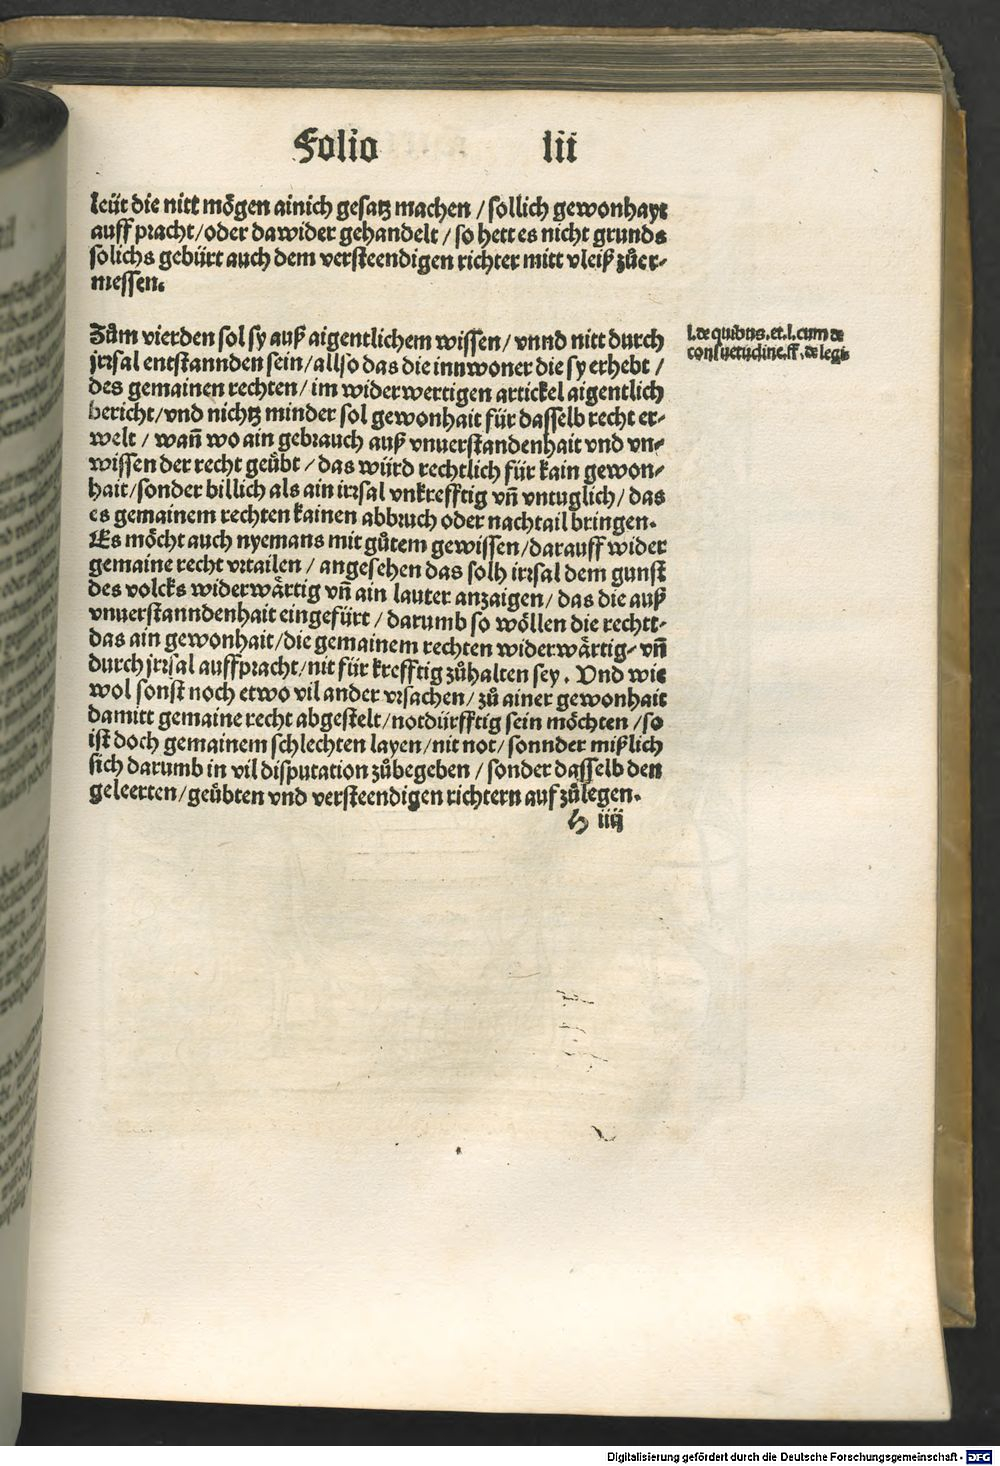 Folio lii
leüt die nitt mögen ainich gesatz machen / sollich gewonhayt
auff pracht / oder dawider gehandelt / so hett es nicht grunds
solichs gebürt auch dem versteendigen richter mitt vleiß zůer-
messen.
Zům vierden sol sy auß aigentlichem wissen / vnnd nitt durch
jrrsal entstannden sein / allso das die innwoner die sy erhebt /
des gemainen rechten / im widerwertigen artickel aigentlich
bericht / vnd nichtz minder sol gewonhait für dasselb recht er-
welt / wañ wo ain gebrauch auß vnuerstandenhait vnd vn-
wissen der recht geübt / das würd rechtlich für kain gewon-
hait / sonder billich als ain irrsal vnkrefftig vñ vntuglich / das
es gemainem rechten kainen abbruch oder nachtail bringen.
Es möcht auch nyemans mit gůtem gewissen / darauff wider
gemaine recht vrtailen / angesehen das solh irrsal dem gunst
des volcks widerwärtig vñ ain lauter anzaigen / das die auß
vnuerstanndenhait eingefürt / darumb so wöllen die rechtt-
das ain gewonhait / die gemainem rechten widerwärtig- vñ
durch jrrsal auffpracht / nit für krefftig zůhalten sey. Vnd wie
wol sonst noch etwo vil ander vrsachen / zů ainer gewonhait
damitt gemaine recht abgestelt / notdürfftig sein möchten / so
ist doch gemainem schlechten layen / nit not / sonnder mißlich
sich darumb in vil disputation zůbegeben / sonder dasselb den
geleerten / geübten vnd versteendigen richtern auf zůlegen.
h iiij
l. de quibus. et. l. cum de
consuetudine. ff. de legi.
Digitalisierung gefördert durch die Deutsche Forschungsgemeinschaft - DFG